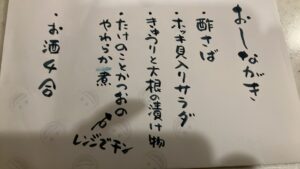 おしながき
・酢さば
・ホッキ貝入りサラダ
・きゅうりと大根の漬け物
・たけのことかつおの
やわらか煮
レンジでチン
・お酒4合